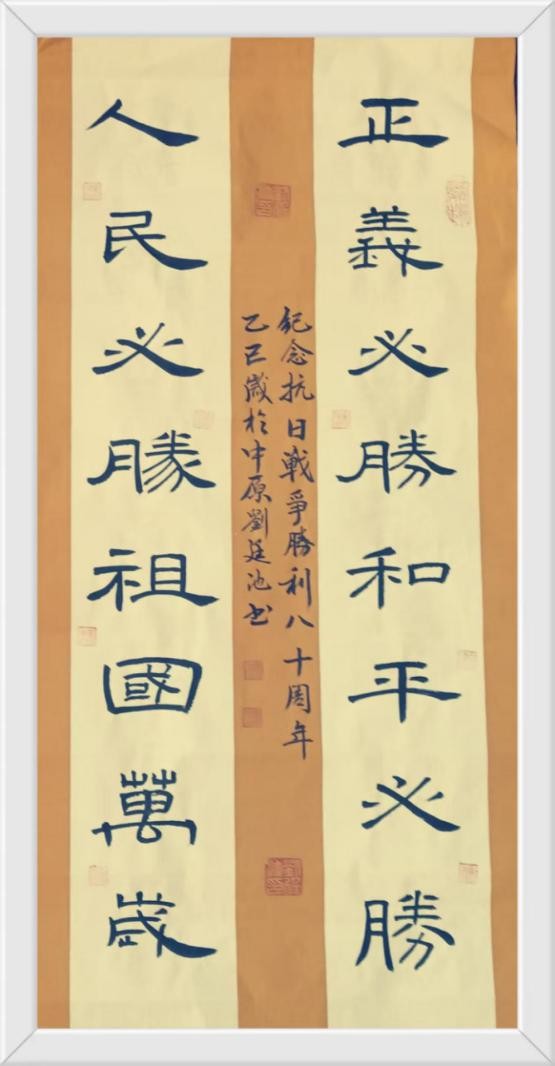 正義必勝和平必勝
紀念抗日戰爭勝利八十周年
乙巳歲於中原劉廷池书
人民必勝祖國萬歲